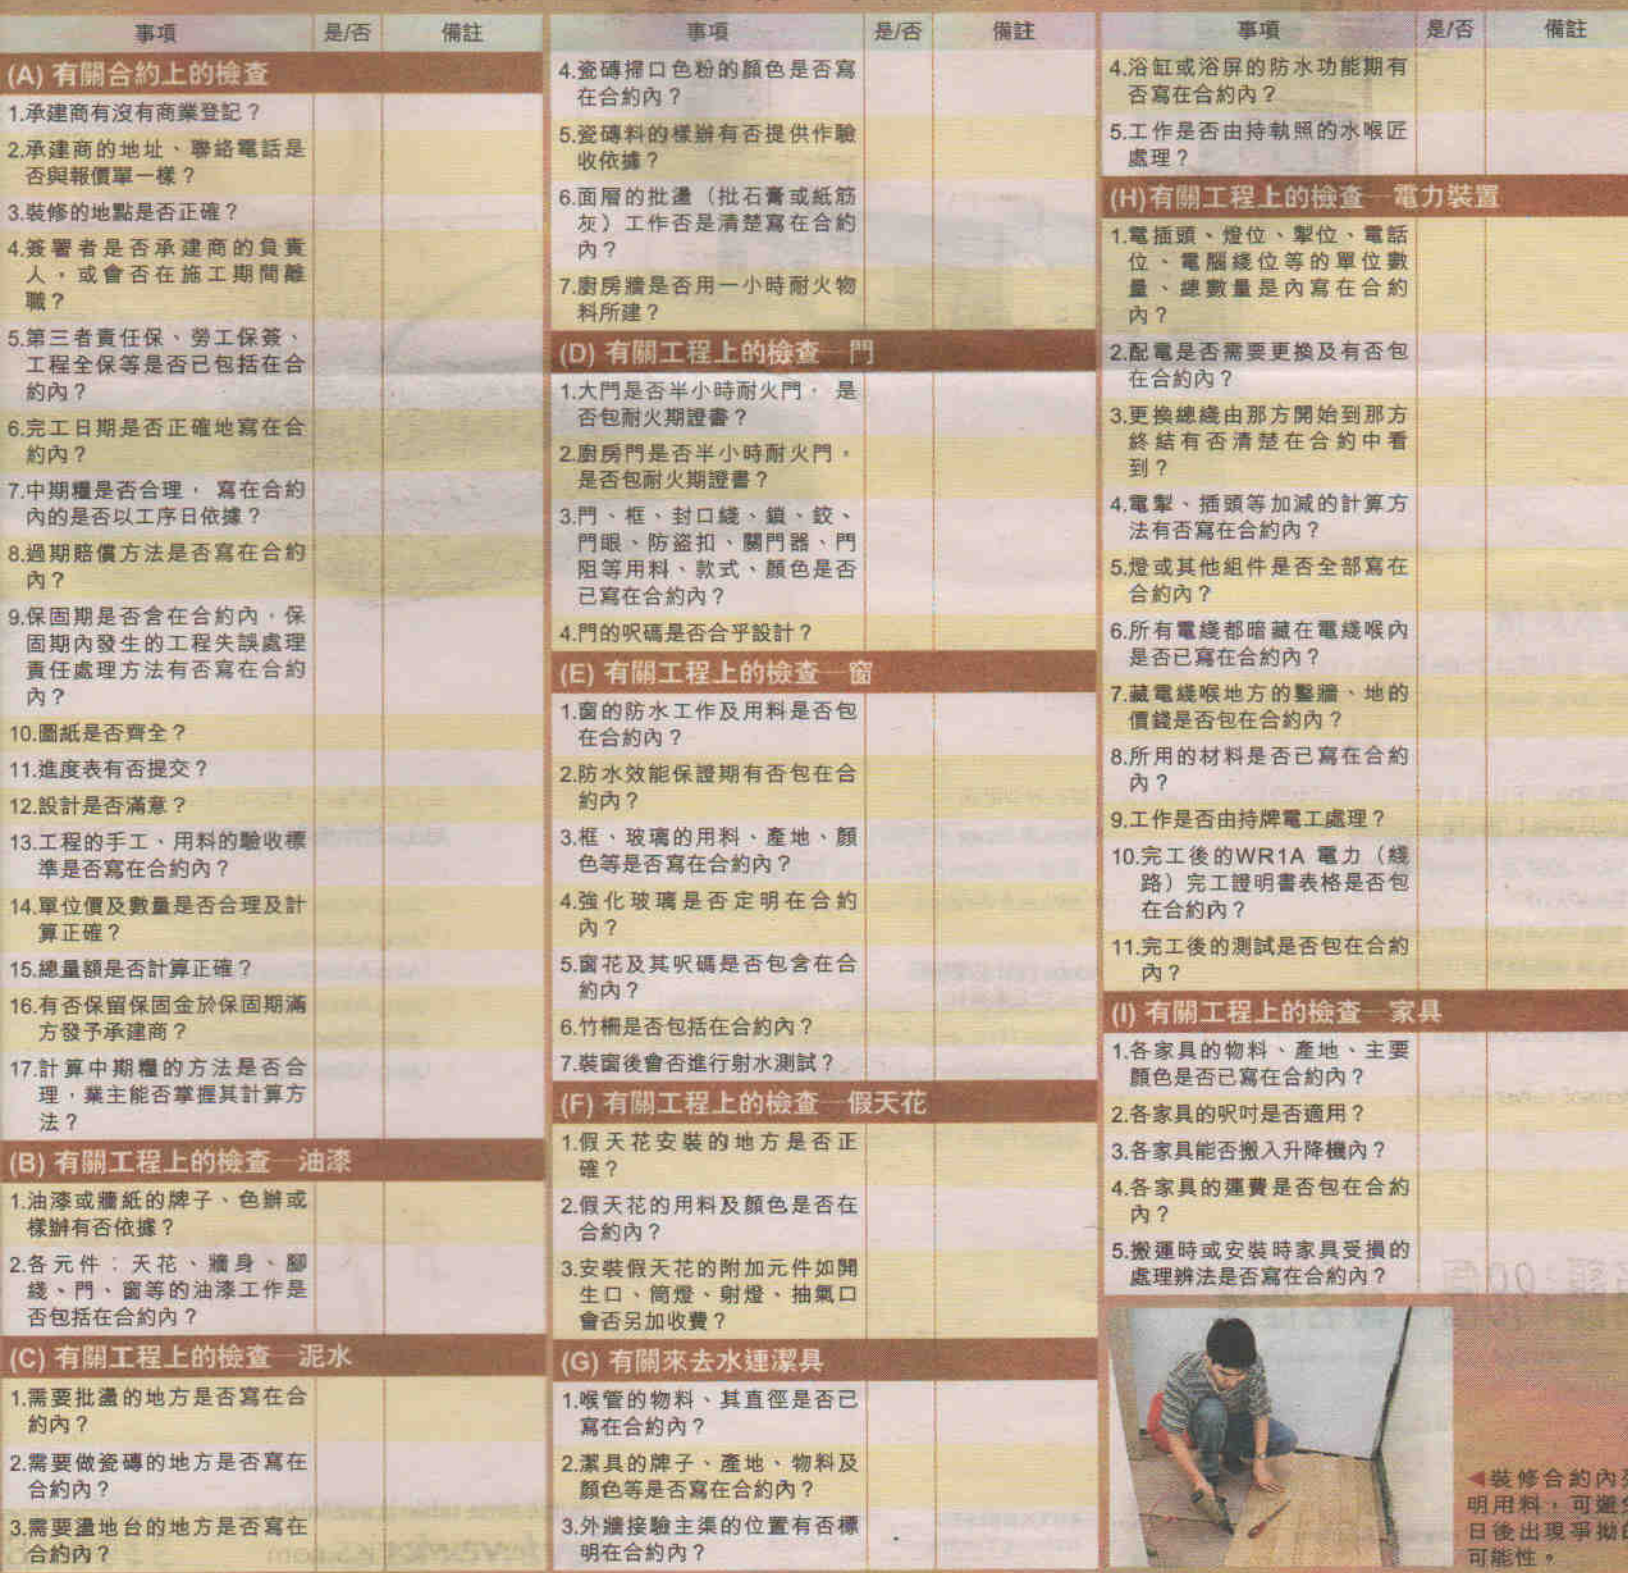 事項 是/否 備註
(A) 有關合約上的檢查
1.承建商有沒有商業登記？
2.承建商的地址、聯絡電話是
否與報價單一樣？
3.裝修的地點是否正確？
4.簽署者是否承建商的負責
人，或會否在施工期間離
職？
5.第三者責任保、勞工保簽、
工程全保等是否已包括在合
約內？
6.完工日期是否正確地寫在合
約內？
7.中期糧是否合理， 寫在合約
內的是否以工序日依據？
8.過期賠償方法是否寫在合約
內？
9.保固期是否含在合約內，保
固期內發生的工程失誤處理
責任處理方法有否寫在合約
內？
10.圖紙是否齊全？
11.進度表有否提交？
12.設計是否滿意？
13.工程的手工、用料的驗收標
準是否寫在合約內？
14.單位價及數量是否合理及計
算正確？
15.總量額是否計算正確？
16.有否保留保固金於保固期滿
方發予承建商？
17.計算中期糧的方法是否合
理，業主能否掌握其計算方
法？
(B) 有關工程上的檢查—油漆
1.油漆或牆紙的牌子、色辦或
樣辦有否依據？
2.各元件：天花、牆身、腳
綫、門、窗等的油漆工作是
否包括在合約內？
(C) 有關工程上的檢查—泥水
1.需要批盪的地方是否寫在合
約內？
2.需要做瓷磚的地方是否寫在
合約內？
3.需要盪地台的地方是否寫在
合約內？
事項 是/否 備註
4.瓷磚掃口色粉的顏色是否寫
在合約內？
5.瓷磚料的樣辦有否提供作驗
收依據？
6.面層的批盪（批石膏或紙筋
灰）工作否是清楚寫在合約
內？
7.廚房牆是否用一小時耐火物
料所建？
(D) 有關工程上的檢查—門
1.大門是否半小時耐火門， 是
否包耐火期證書？
2.廚房門是否半小時耐火門，
是否包耐火期證書？
3.門、框、封口綫、鎖、鉸、
門眼、防盜扣、關門器、門
阻等用料、款式、顏色是否
已寫在合約內？
4.門的呎碼是否合乎設計？
(E) 有關工程上的檢查—窗
1.窗的防水工作及用料是否包
在合約內？
2.防水效能保證期有否包在合
約內？
3.框、玻璃的用料、產地、顏
色等是否寫在合約內？
4.強化玻璃是否定明在合約
內？
5.窗花及其呎碼是否包含在合
約內？
6.竹柵是否包括在合約內？
7.裝窗後會否進行射水測試？
(F) 有關工程上的檢查—假天花
1.假天花安裝的地方是否正
確？
2.假天花的用料及顏色是否在
合約內？
3.安裝假天花的附加元件如開
生口、筒燈、射燈、抽氣口
會否另加收費？
(G) 有關來去水連潔具
1.喉管的物料、其直徑是否已
寫在合約內？
2.潔具的牌子、產地、物料及
顏色等是否寫在合約內？
3.外牆接驗主渠的位置有否標
明在合約內？
事項 是/否 備註
4.浴缸或浴屏的防水功能期有
否寫在合約內？
5.工作是否由持執照的水喉匠
處理？
(H)有關工程上的檢查—電力裝置
1.電插頭、燈位、掣位、電話
位、電腦綫位等的單位數
量、總數量是內寫在合約
內？
2.配電是否需要更換及有否包
在合約內？
3.更換總綫由那方開始到那方
終結有否清楚在合約中看
到？
4.電掣、插頭等加減的計算方
法有否寫在合約內？
5.燈或其他組件是否全部寫在
合約內？
6.所有電綫都暗藏在電綫喉內
是否已寫在合約內？
7.藏電綫喉地方的鑿牆、地的
價錢是否包在合約內？
8.所用的材料是否已寫在合約
內？
9.工作是否由持牌電工處理？
10.完工後的WR1A 電力（綫
路）完工證明書表格是否包
在合約內？
11.完工後的測試是否包在合約
內？
(I) 有關工程上的檢查—家具
1.各家具的物料、產地、主要
顏色是否已寫在合約內？
2.各家具的呎吋是否適用？
3.各家具能否搬入升降機內？
4.各家具的運費是否包在合約
內？
5.搬運時或安裝時家具受損的
處理辨法是否寫在合約內？
◀裝修合約內
明用料，可避
日後出現爭拗
可能性。